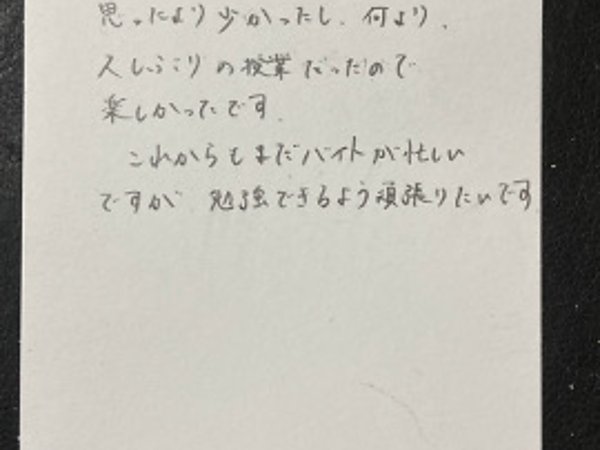 思ったより少かったし、何より、
久しぶりの授業だったので
楽しかったです。
これからもまだバイトが忙しい
ですが 勉強できるよう頑張りたいです